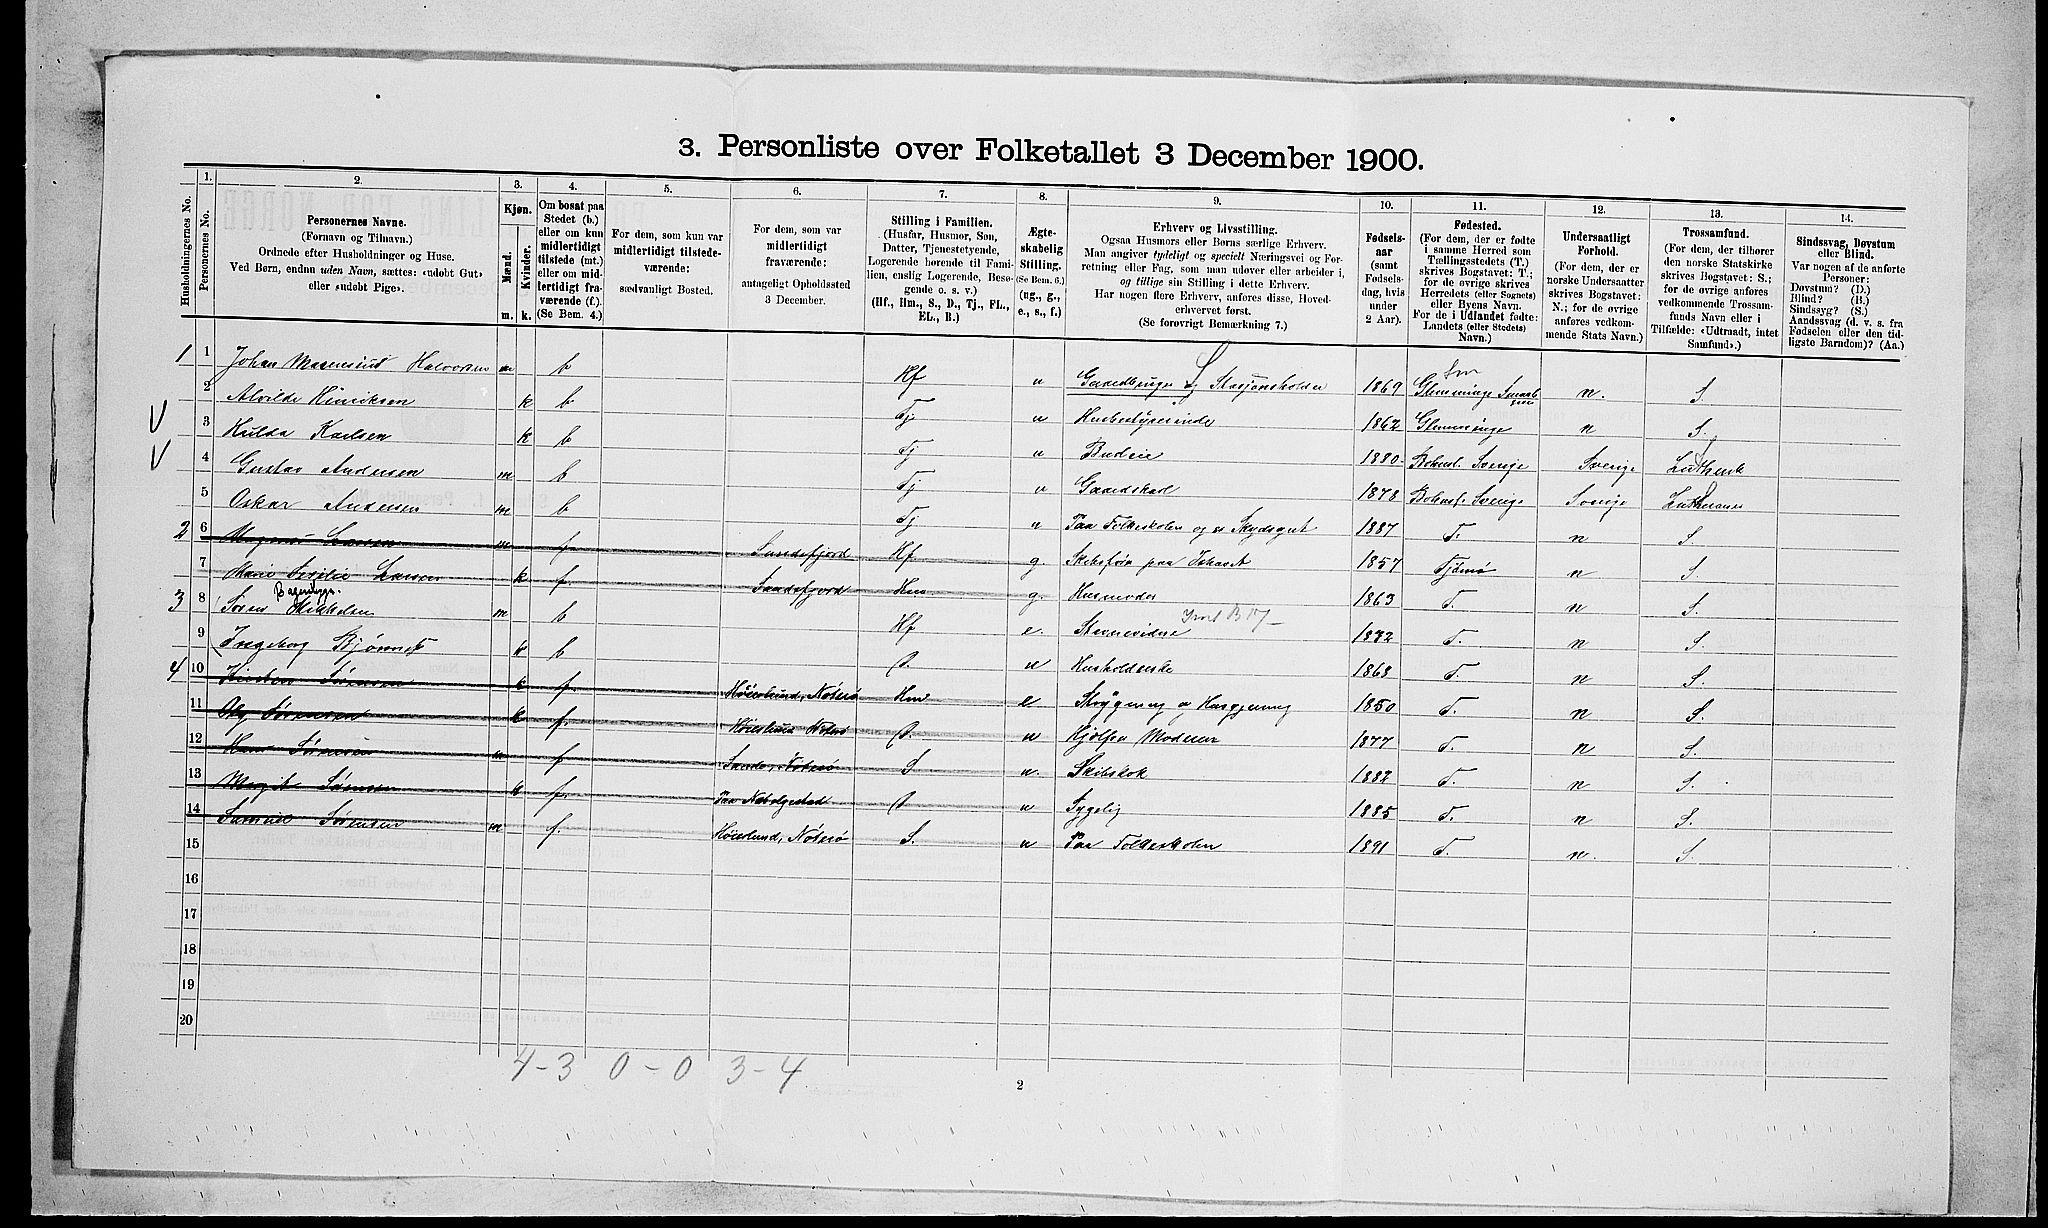 3. Personliste over Folketallet 3 December 1900.
Husholdningernes No.
1.
Personernes No.
2.
Personernes Navne.
(Fornavn og Tilnavn.)
Ordnede efter Husholdninger og Huse.
Ved Børn, endnu uden Navn, sættes: «udøbt Gut»
eller «udøbt Pige».
3.
Kjøn.
Mænd.
Kvinder.
m.
k.
4.
Om bosat paa
Stedet (b.)
eller om kun
midlertidigt
tilstede (mt.)
eller om mid-
lertidigt fra-
værende (f.)
(Se Bem. 4.)
5.
For dem, som kun var
midlertidigt tilstede-
værende:
sædvanligt Bosted.
6.
For dem, som var
midlertidigt
fraværende:
antageligt Opholdssted
3 December.
7.
Stilling i Familien.
(Husfar, Husmor, Søn,
Datter, Tjenestetyende,
Logerende hørende til Fami-
lien, enslig Logerende, Besø-
gende o. s. v.)
(Hf., Hm., S., D., Tj., FL.,
EL., B.)
8.
Ægte-
skabelig
Stilling.
(Se Bem. 6.)
(ug., g.,
e., s., f.)
9.
Erhverv og Livsstilling.
Ogsaa Husmors eller Børns særlige Erhverv.
Man angiver tydeligt og specielt Næringsvei og For-
retning eller Fag, som man udøver eller arbeider i,
og tillige sin Stilling i dette Erhverv.
Har nogen flere Erhverv, anføres disse, Hoved-
erhvervet først.
(Se forøvrigt Bemærkning 7.)
10.
Fødsels-
aar
(samt
Fødsels-
dag, hvis
under
2 Aar).
11.
Fødested.
(For dem, der er fødte
i samme Herred som
Tællingsstedets (T.)
skrives Bogstavet: T.;
for de øvrige skrives
Herredets (eller Sognets)
eller Byens Navn.
For de i Udlandet fødte:
Landets (eller Stedets)
Navn.)
12.
Undersaatligt
Forhold.
(For dem, der er
norske Undersaatter
skrives Bogstavet:
N.; for de øvrige
anføres vedkom-
mende Stats Navn.)
13.
Trossamfund.
(For dem, der tilhører
den norske Statskirke
skrives Bogstavet: S.;
for de øvrige anføres
vedkommende Trossam-
funds Navn eller i
Tilfælde: «Udtraadt, intet
Samfund».)
14.
Sindssvag, Døvstum
eller Blind.
Var nogen af de anførte
Personer:
Døvstum? (D.)
Blind? (B.)
Sindssyg? (S.)
Aandssvag (d. v. s. fra
Fødselen eller den tid-
ligste Barndom)? (Aa.)
1 1 Johan Halvorsen m b Hf u Gaardbruger & Skysstasjonsholder 1869 Glemminge n. S.
2 Alvilde Henriksen k b Tj u Husbestyrerinde 1862 Glemminge n S.
3 Hulda Karlsen k b Tj u Budeie 1880 Bohusl. Sverige Sverige Luthersk
4 Gustav Andersen m b Tj u Gaardskarl 1878 Bohusl. Sverige Sverige
5 Oskar Andersen m b Tj u Paa Folkeskolen og er Skydsgut 1887 T. n S.
2 6 Magnus Larsen m f. Sandefjord Hf. g. Skibsfører paa Ishavet 1857 Tjømø n S.
7 Marie Larsen k f. Sandefjord Hm g. Husmoder 1863 T. n S.
3 8 Søren Mikkelsen m b Hf e. 1872 T. n S.
9 Ingeborg k b D. u Husholderske 1863 T. n S.
4 10 Sørensen k f. Nøterø Hm e Strygning og Husgjerning 1850 T. n S.
11 Sørensen k f. Nøterø D. u Hjælper Moderen 1877 T. n S.
12 Hans Sørensen m f Sande, Nøterø S. u. Skibskok 1882 T. n S.
13 Margit Sørensen k f. D. u Sygelig 1885 T. n S.
14 Samuel Sørensen m f. Nøterø S. u Paa Folkeskolen 1891 T. n. S.
15
16
17
18
19
20
4-3 0-0 3-4
2